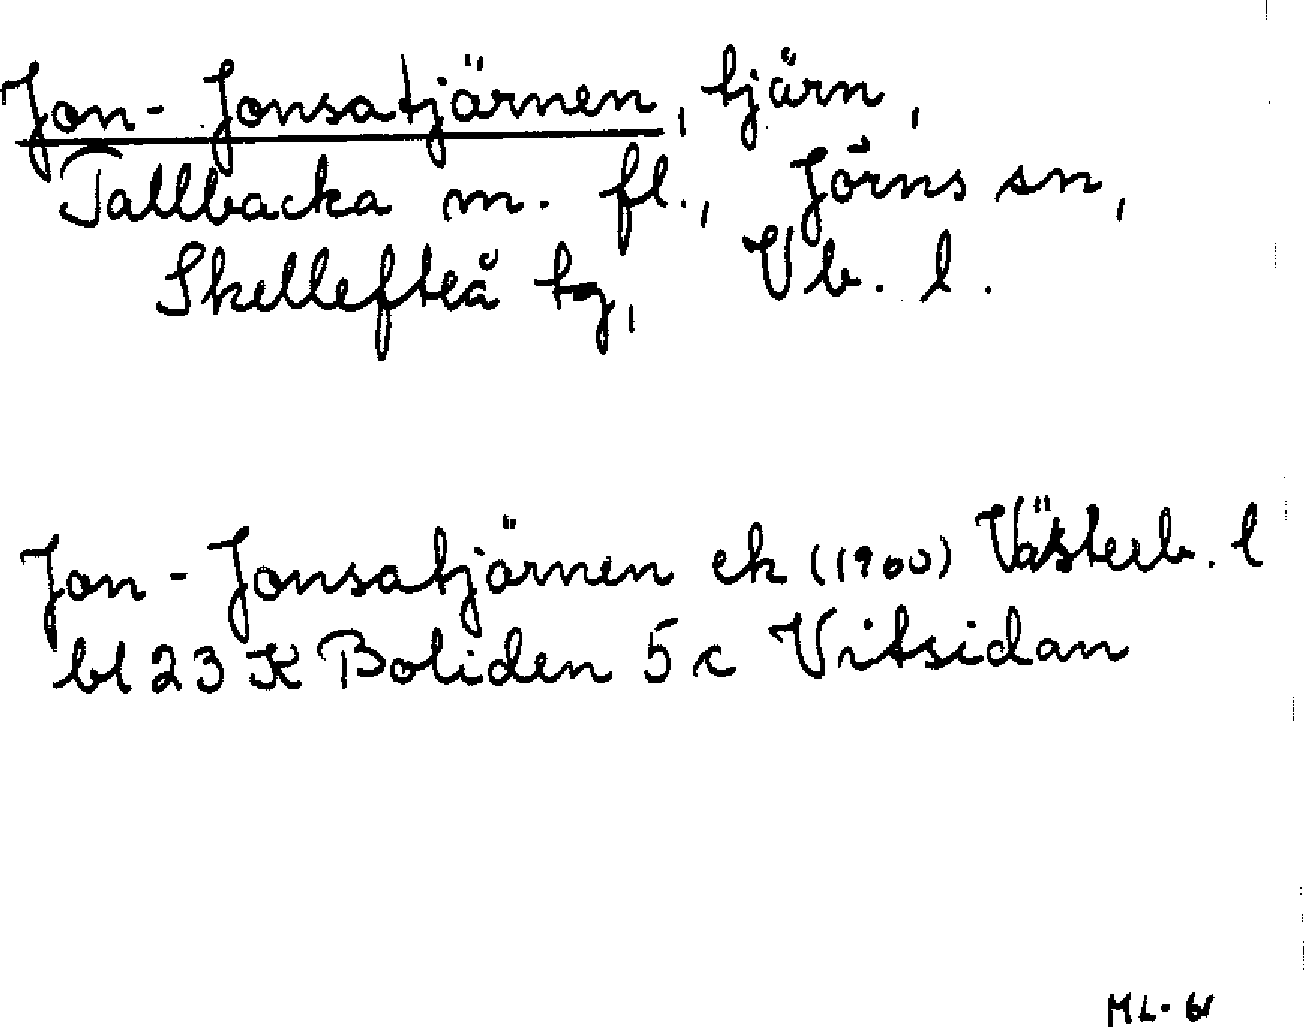 Jon-Jonsatjärnen, tjärn,
Tallbacka m. fl., Jörns sn,
Skellefteå tg, Vb. l.
Jon-Jonsatjärnen ek (1960) Västerb. l
bl 23 K Boliden 5 c Vitsidan
ML-61